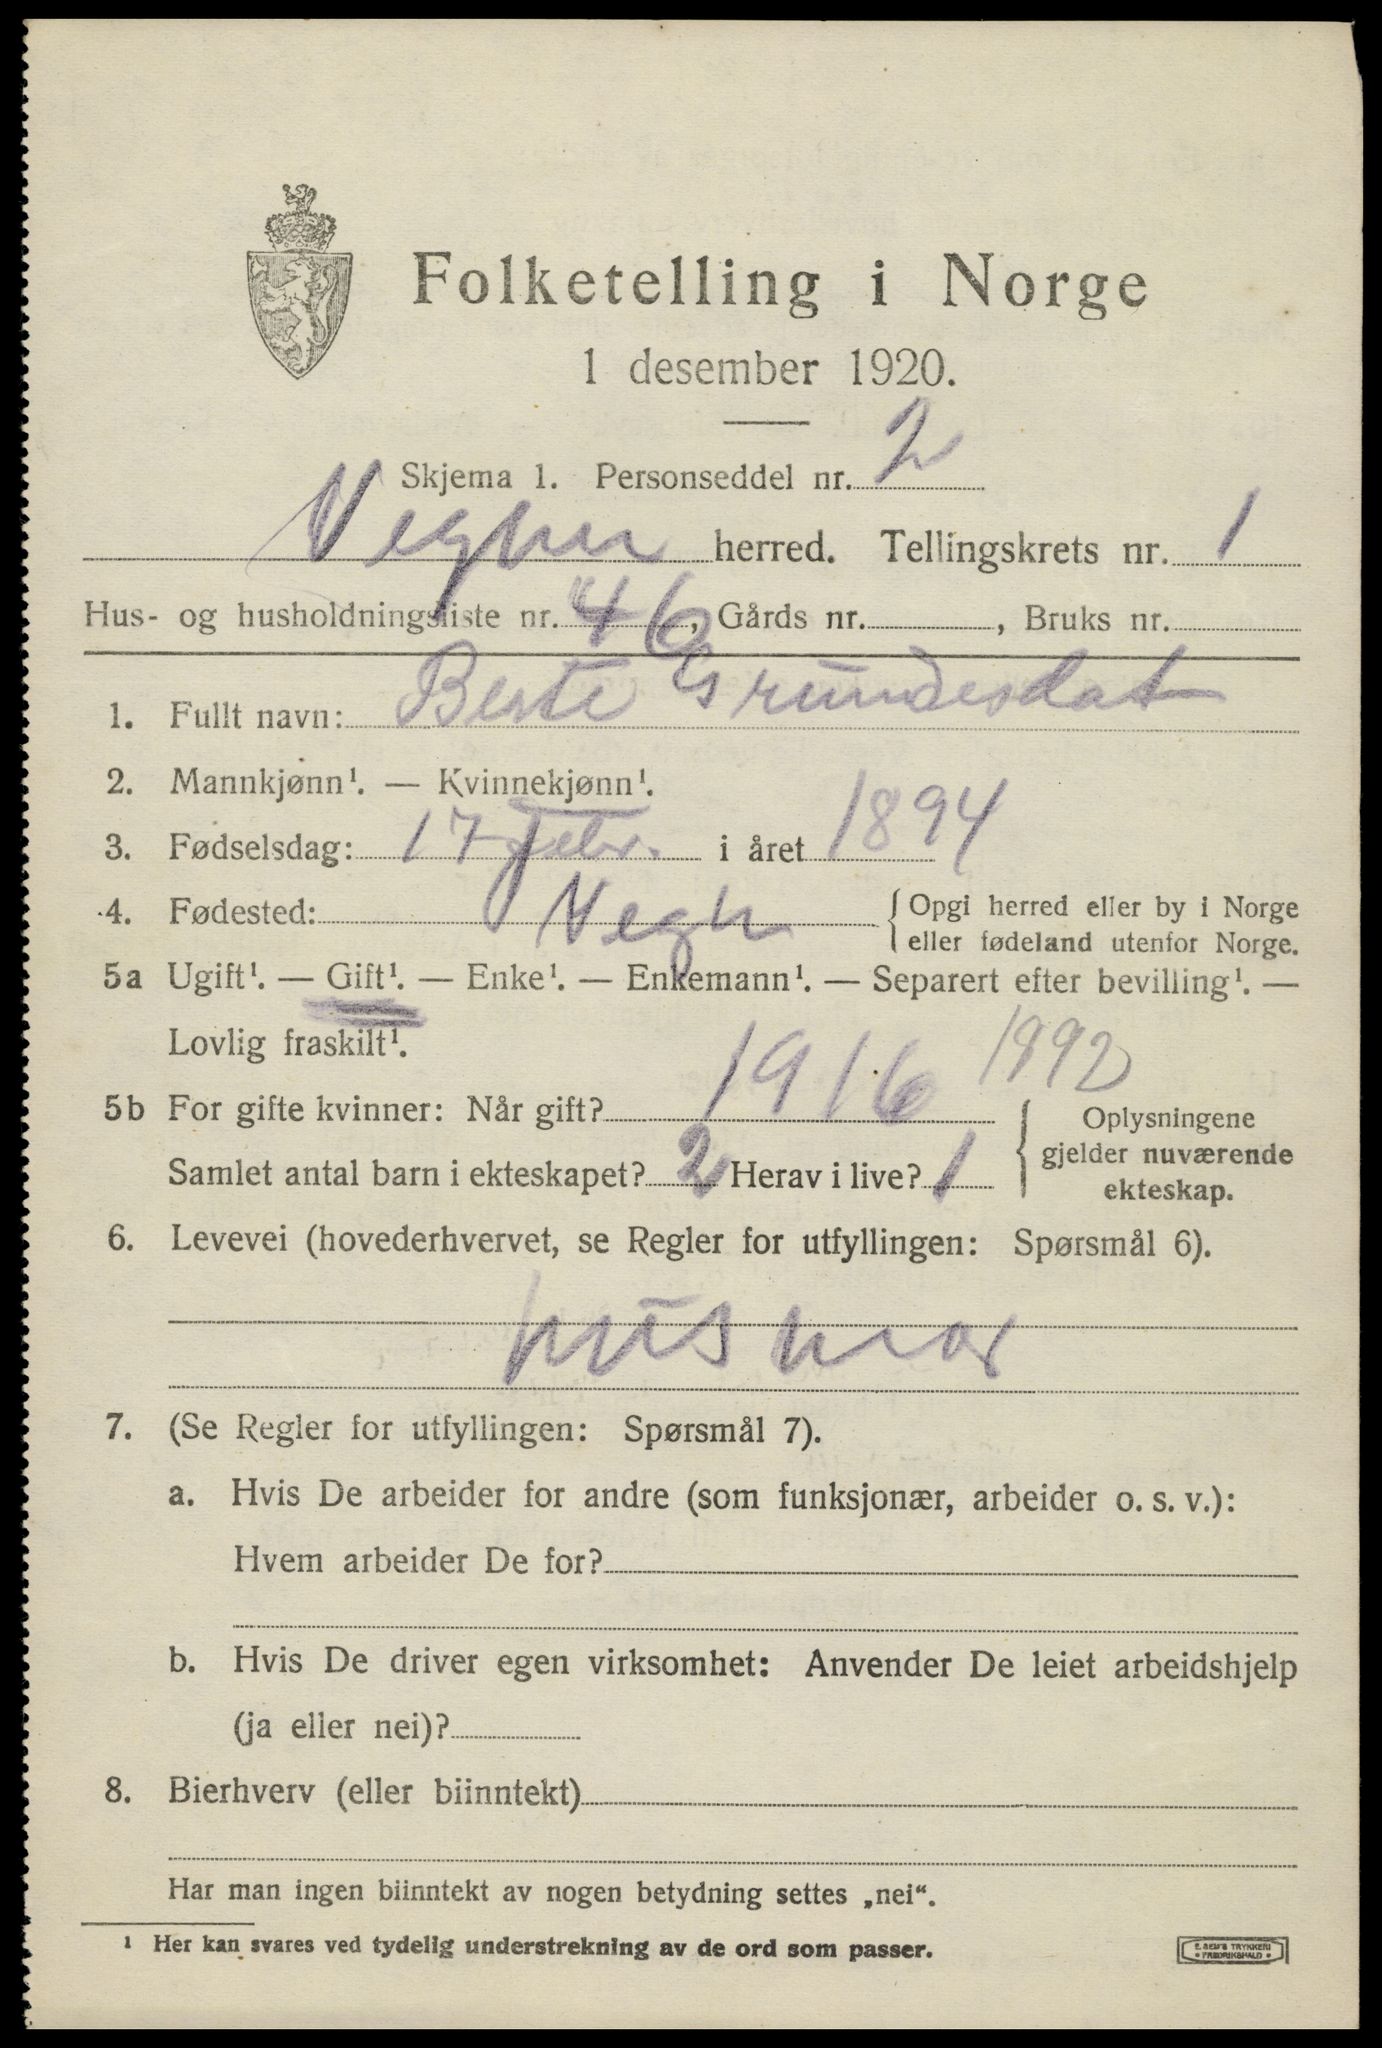 Folketelling i Norge
1 desember 1920.
Skjema 1. Personseddel nr. 2
herred. Tellingskrets nr. 1
Hus- og husholdningsliste nr. 46, Gårds nr. , Bruks nr.
1. Fullt navn: Berte Grundesdat
2. Mannkjønn¹. — Kvinnekjønn¹.
3. Fødselsdag: 17 febr. i året 1894
4. Fødested: Vegh { Opgi herred eller by i Norge
eller fødeland utenfor Norge.
5a Ugift¹. — Gift¹. — Enke¹. — Enkemann¹. — Separert efter bevilling¹. —
Lovlig fraskilt¹.
1892
5b For gifte kvinner: Når gift? 1916
Samlet antal barn i ekteskapet? 2 Herav i live? 1
Oplysningene
gjelder nuværende
ekteskap.
6. Levevei (hovederhvervet, se Regler for utfyllingen: Spørsmål 6).
husmor
7. (Se Regler for utfyllingen: Spørsmål 7).
a. Hvis De arbeider for andre (som funksjonær, arbeider o. s. v.):
Hvem arbeider De for?
b. Hvis De driver egen virksomhet: Anvender De leiet arbeidshjelp
(ja eller nei)?
8. Bierhverv (eller biinntekt)
Har man ingen biinntekt av nogen betydning settes „nei“.
¹ Her kan svares ved tydelig understrekning av de ord som passer.
E. SEM'S TRYKKERI
• FREDRIKSHALD •